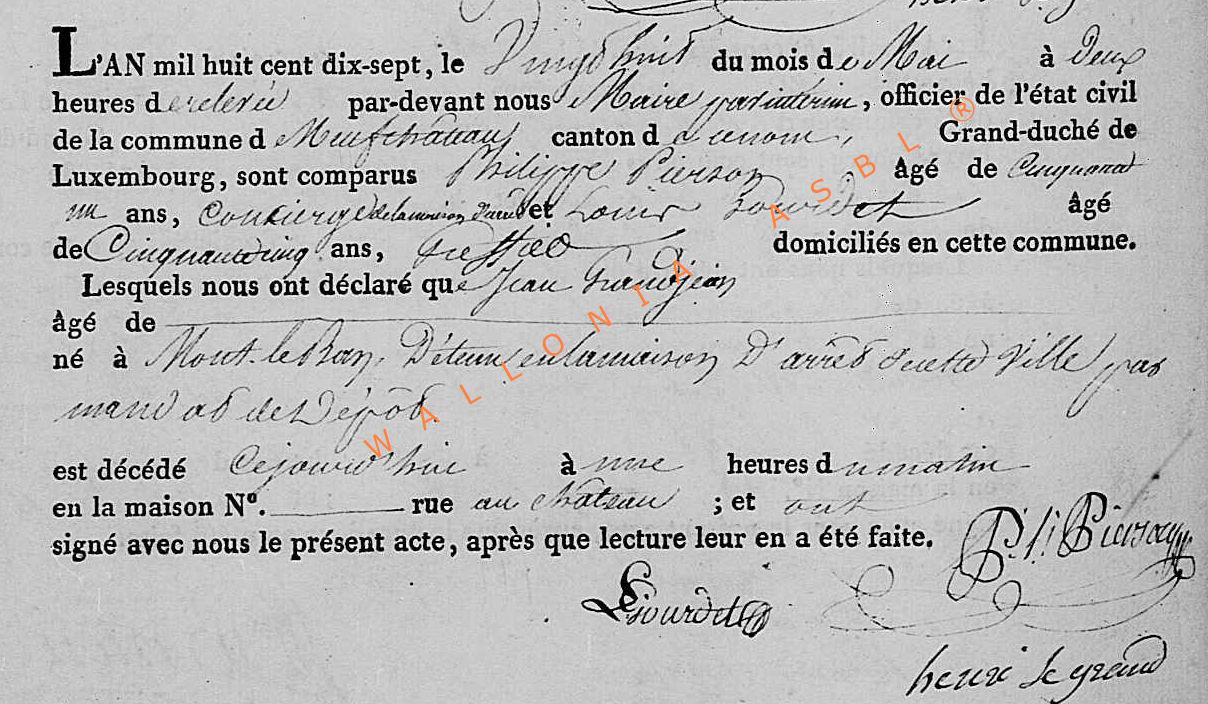 L'AN mil huit cent dix-sept, le Vingt huit du mois de Mai à deux
heures de relevée par-devant nous Maire par interim, officier de l'état civil
de la commune d Neufchateau canton d e cenom, Grand-duché de
Luxembourg, sont comparus Philippe Pierson Agé de Cinquante
un ans, Concierge de la maison d'arrêt et Louis Gourdet âgé
de Cinquante cinq ans, Greffier domiciliés en cette commune.
Lesquels nous ont déclaré que Jean Grandjean
âgé de
né à Mont-le Ban, Détenu en la maison D'arrêt de cette Ville par
mandat de Dépôt.
est décédé Cejourd'hui à une heures du matin
en la maison N°. rue au château ; et ont
signé avec nous le présent acte, après que lecture leur en a été faite.
P. j. Pierson
L Gourdet
henri Legrand
WALLONIA ASBL ®